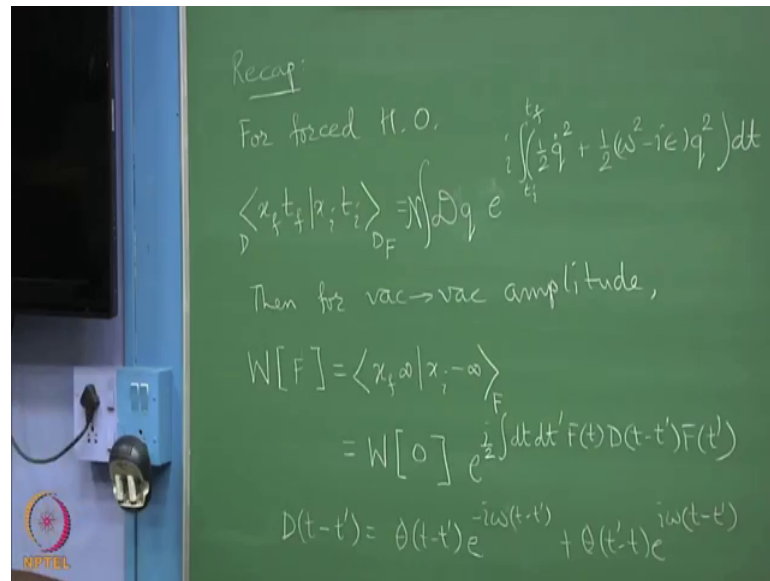 Recap:
For forced H.O.
⟨x_f t_f | x_i t_i⟩_{D_F} = N∫Dq e^{i∫_{t_i}^{t_f}(½ q̇² + ½(ω² - iϵ)q²)dt}
D
Then for vac → vac amplitude,
W[F] = ⟨x_f ∞ | x_i -∞⟩_F
= W[0] e^{i/2 ∫dt dt' F(t) D(t-t') F(t')}
D(t-t') = θ(t-t') e^{-iω(t-t')} + θ(t'-t) e^{iω(t-t')}
NPTEL